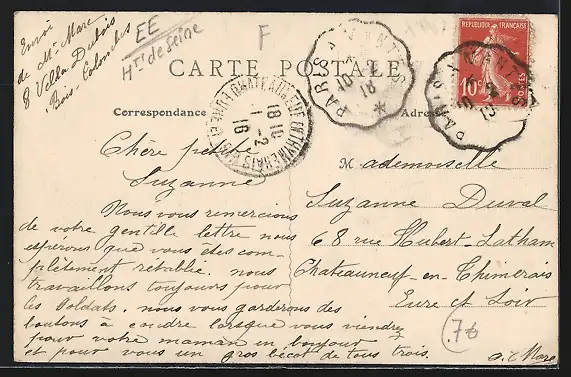 Envoi
de Mr Marc
8 Villa Dubois
Bois-Colombes
EE
Hts de Seine
F
CARTE POSTALE
Correspondance
Adresse
RÉPUBLIQUE FRANÇAISE
10c
POSTES
PARIS A NANTES
PARIS A NANTES
18 10
1 -2
16
Chère petite
Suzanne
Nous vous remercions
de votre gentille lettre nous
espérons que vous êtes com-
plètement rétablie. nous
travaillons toujours pour
les soldats, nous vous garderons des
boutons à coudre lorsque vous viendrez
pour votre maman un bonjour
et pour vous un gros bécot de tous trois.
Mademoiselle
Suzanne Duval
68 rue Hubert-Latham
Chateauneuf-en-Thimerais
Eure et Loir
76
A. Marc